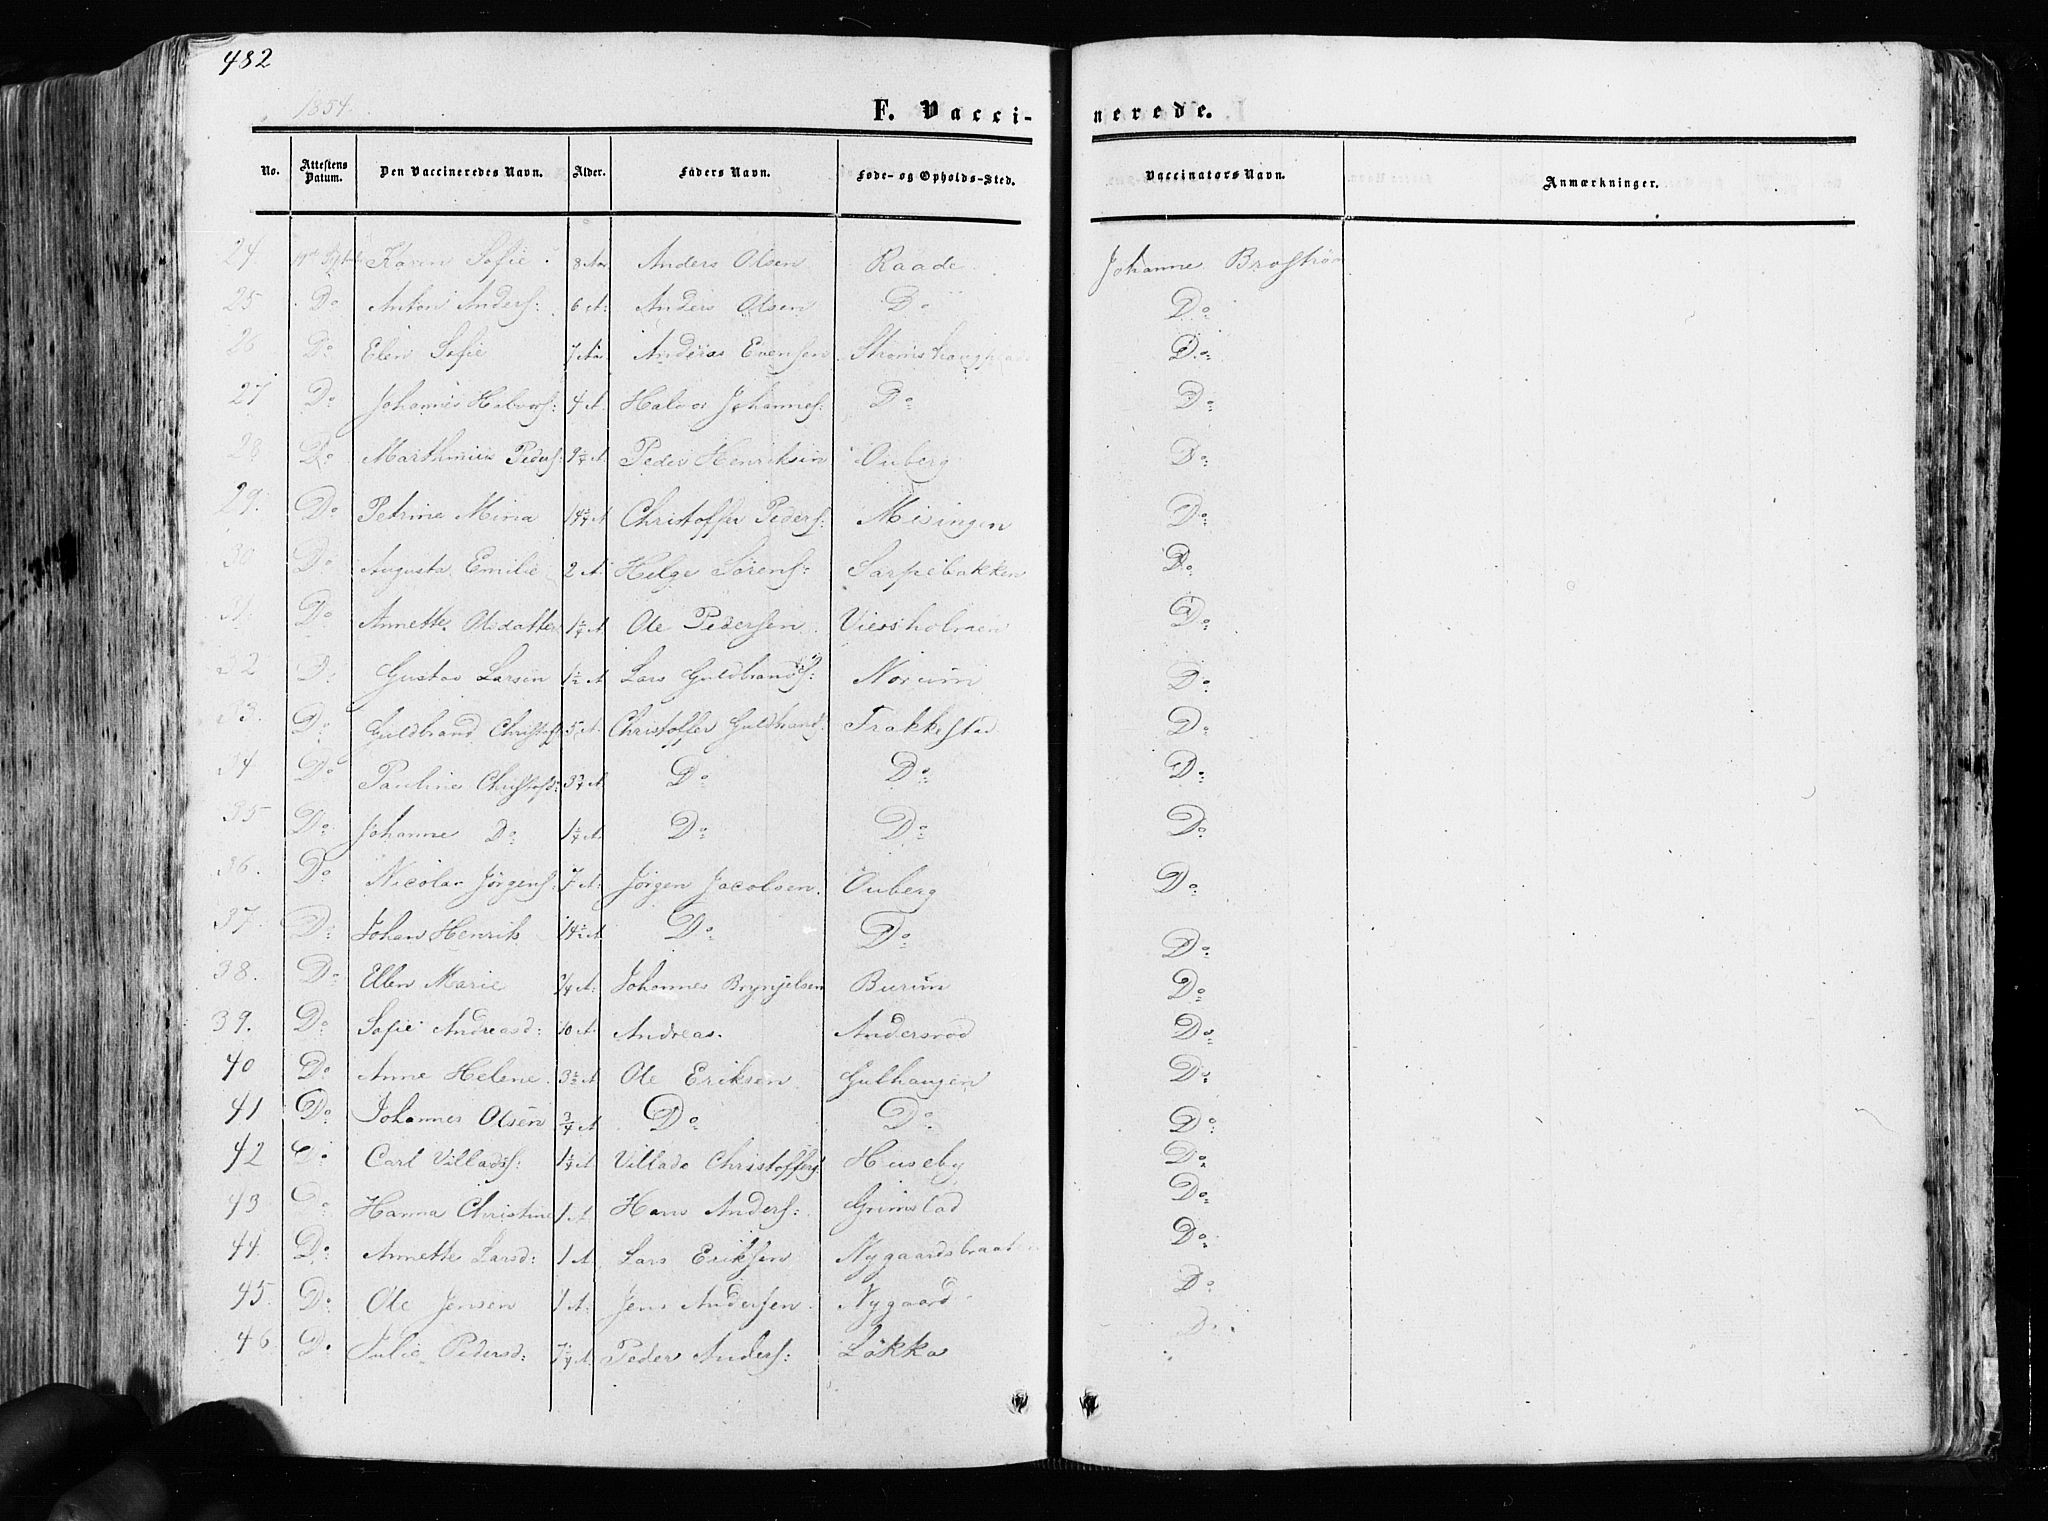 482
1854.
F. Vacci-
nerede.
No. Attestens Datum. Den Vaccineredes Navn. Alder. Faders Navn. Føde- og Opholds-Sted. Vaccinators Navn. Anmærkninger.
24 Karen Sofie. 8 Aar Anders Olsen Raade. Johanne Brostrøm
25 Do Anton Anders: 6 A: Anders Olsen Do Do
26 Do Elen Sofie 7 Aar Andreas Evensen Do
27 Do Johannes Halvors: 4 A. Halvor Johannes: Do Do
28 Do Marthinus Peders: A. Peder Henriksen Ouberg Do
29. Do Petrine Mina A Christoffer Peders: Misingen Do
30 Do Augusta Emilie 2 A: Helge Sörens: Sarpebakken Do
31. Do Annette Olsdatter 1 1/4 A Ole Pedersen Viersholmen Do
32 Do Gustav Larsen 1 1/2 A Lars Guldbrands: Norum Do
33. Do Guldbrand Christof 5 A. Christoffer Guldbrands: Trakkestad Do
34 Do Pauline Christofd: A Do Do Do
35 Do Johanne Do 1 1/4 A. Do Do Do
36. Do Nicolai Jörgens: 7 A: Jörgen Jacobsen. Ouberg Do
37. Do Johan Henrik 14 1/2 A. Do Do Do
38. Do Ellen Marie 3/4 A: Johannes Brynjelsen Burum Do
39. Do Sofie Andreasd: 10 A. Andreas. Andersrod Do
40 Do Anne Helene. 3 1/2 A Ole Eriksen Gulhaugen Do
41 Do Johannes Olsen 3/4 A. Do Do Do
42 Do Carl Villads: 1 1/4 A Villads Christoffers: Huseby Do
43 Do Hanna Christine 1 A. Hans Anders: Grimstad Do
44. Do Annette Larsd: 1 A. Lars Eriksen Nygaardsbraaten Do
45. Do Ole Jensen 1 A: Jens Andersen. Nygaard Do
46 Do Julie Pedersd: 7 1/4 A. Peder Anders: Lökka Do